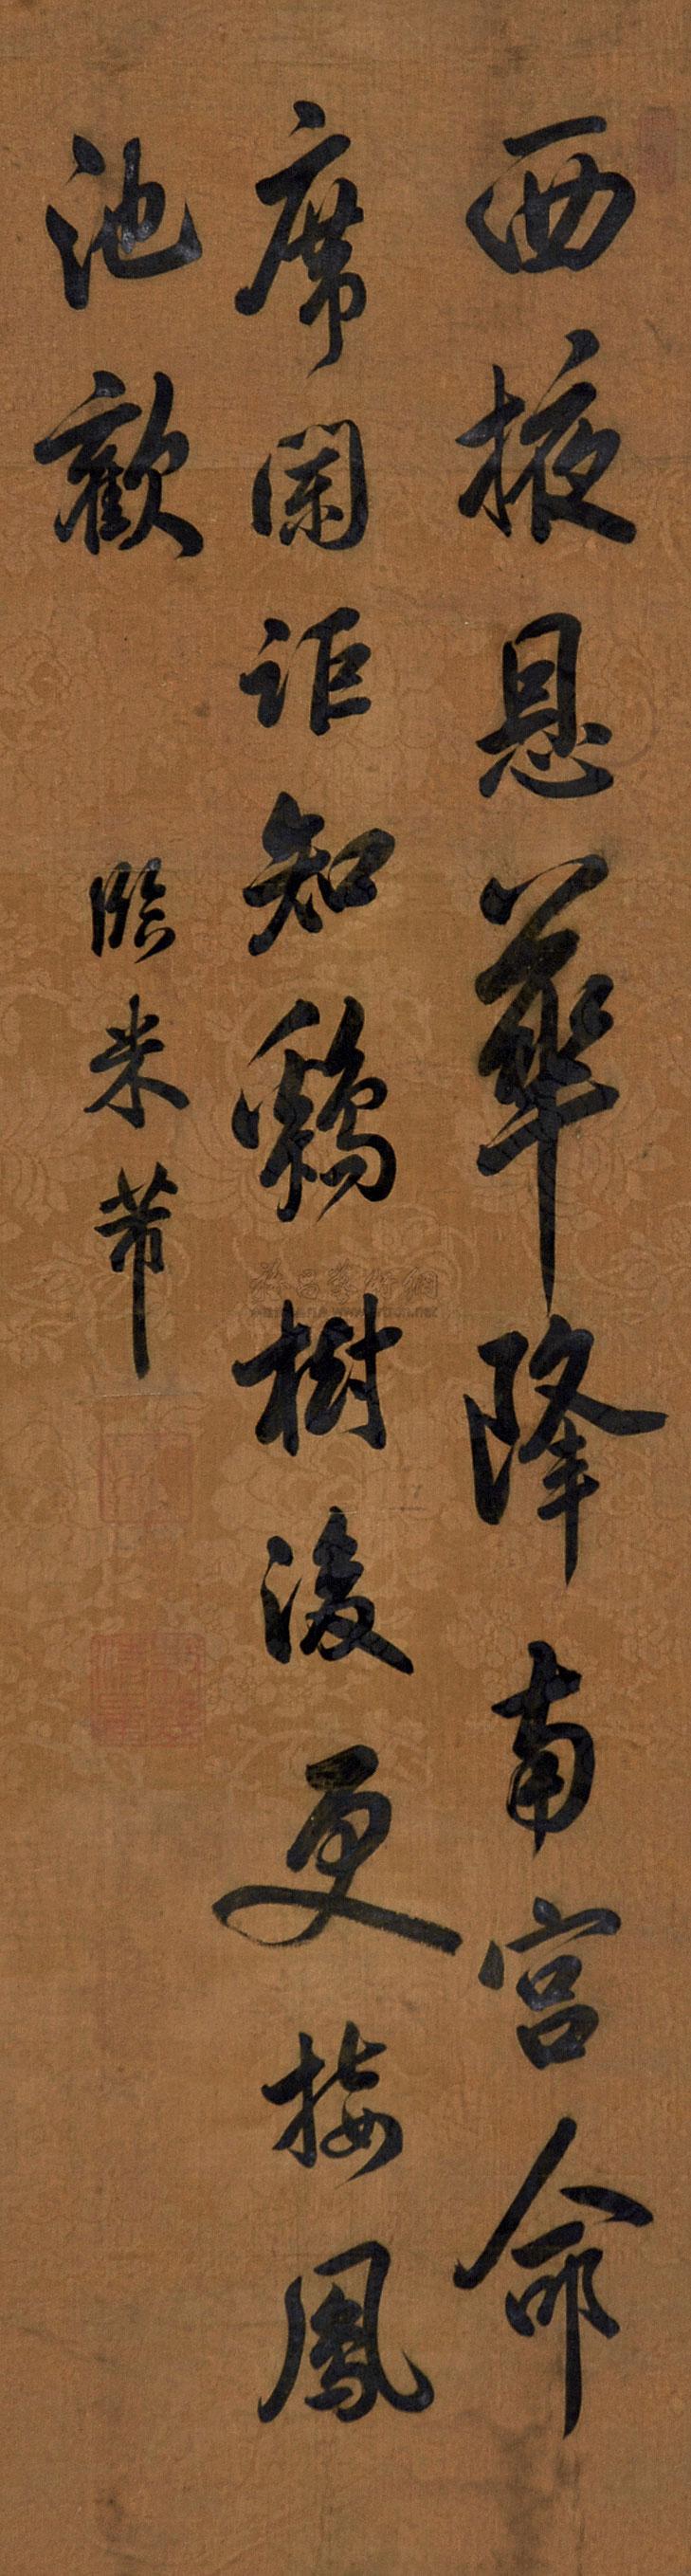 西掖恩華降南宮命
席闌詎知鷄樹後更接鳳
池歡
臨米芾